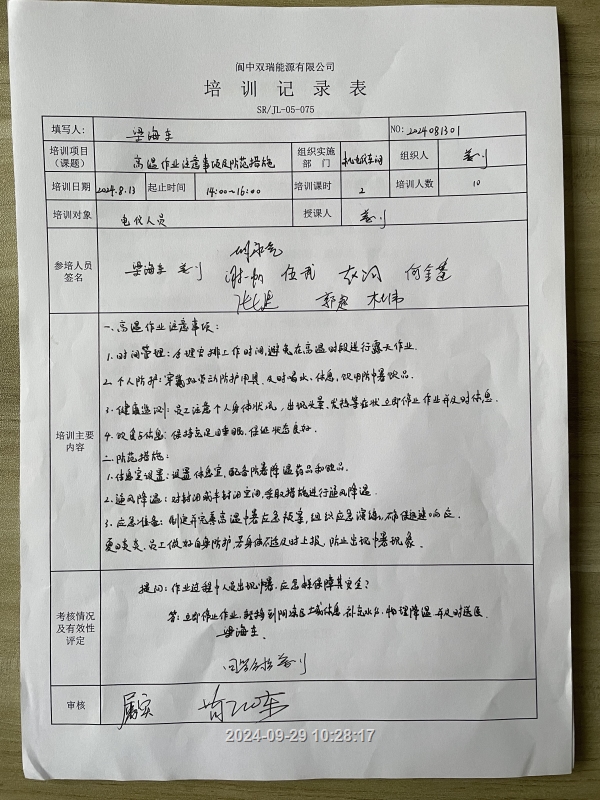 阆中双瑞能源有限公司
培训记录表
SR/JL-05-075
填写人： 梁海东 NO: 2024081301
培训项目（课题） 高温作业注意事项及防范措施 组织实施部门 机电仪车间 组织人
培训日期 2024.8.13 起止时间 14:00~16:00 培训课时 2 培训人数 10
培训对象 电仪人员 授课人
参培人员签名
梁海东 伍武 何金莲
培训主要内容
一、高温作业注意事项：
1. 时间管理：合理安排工作时间，避免在高温时段进行露天作业.
2. 个人防护：穿戴好劳动防护用具，及时喝水、休息，饮用防中暑饮品.
3. 健康监测：员工注意个人身体状况，出现头晕、发热等症状立即停止作业并及时休息.
4. 饮食与休息：保持充足的睡眠，保证状态良好.
二、防范措施：
1. 休息室设置：设置休息室，配备防暑降温药品和饮品.
2. 通风降温：对封闭或半封闭空间，采取措施进行通风降温.
3. 应急准备：制定并完善高温中暑应急预案，组织应急演练，确保迅速响应.
夏日炎炎，员工做好自身防护，若身体不适及时上报，防止出现中暑现象.
考核情况及有效性评定
提问：作业过程中人员出现中暑，应怎样保障其安全？
答：立即停止作业，转移到阴凉区域休息，补充水分，物理降温并及时送医.
梁海东.
审核 属实
2024-09-29 10:28:17